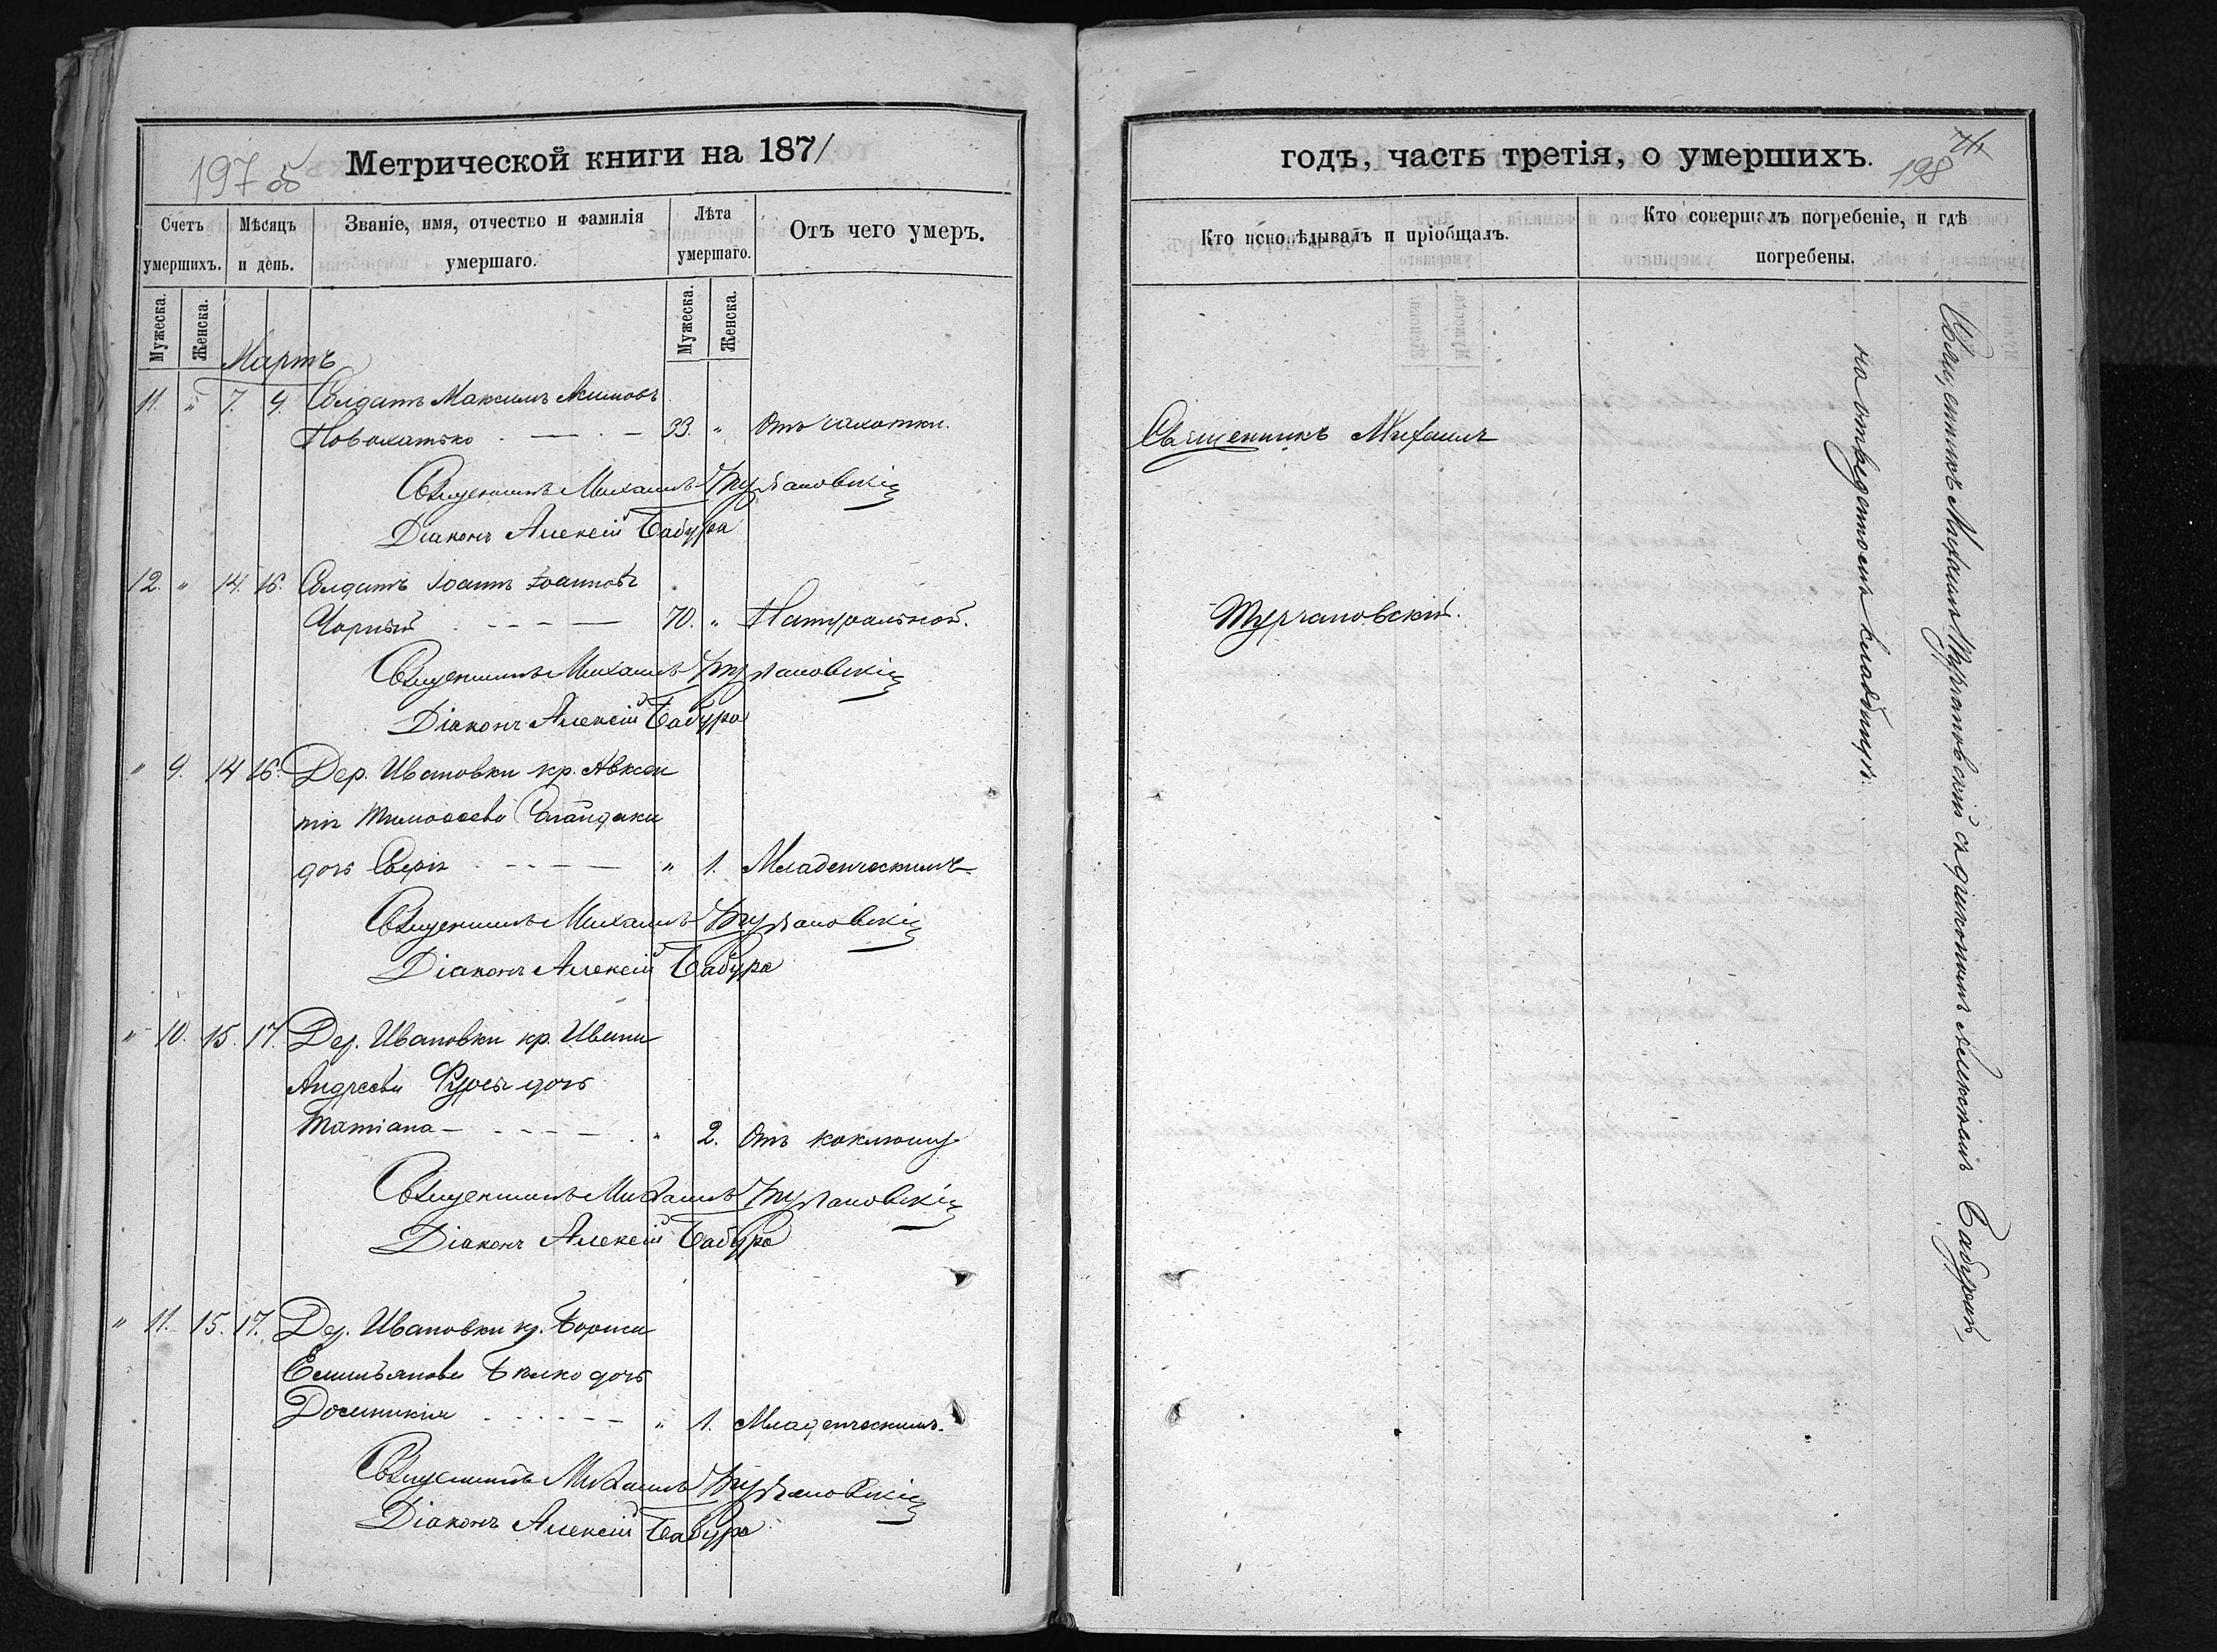 197 об
Метрической книги на 1871
Счетъ умершихъ.
Мѣсяцъ и день.
Званіе, имя, отчество и фамилія умершаго.
Лѣта умершаго.
Отъ чего умеръ.
Мужеска.
Женска.
Мужеска.
Женска.
Мартъ
11. " 7. 9. Солдатъ Максимъ Акимовъ
Новохатько 33. " Отъ чахотки.
Священникъ Михаилъ Турчановскій
Діаконъ Алексій Бабура
12. " 14. 16. Солдатъ Іоаннъ Іоанновъ
Чорный 70. " Натуральной.
Священникъ Михаилъ Турчановскій
Діаконъ Алексій Бабура
" 9. 14 16. Дер. Ивановки кр. Авксен
тія Тимоѳеева
дочь " 1. Младенческимъ
Священникъ Михаилъ Турчановскій
Діаконъ Алексій Бабура
" 10. 15. 17. Дер. Ивановки кр. Ивана
Андреева дочь
Татіана " 2. Отъ коклюшу
Священникъ Михаилъ Турчановскій
Діаконъ Алексій Бабура
" 11. 15. 17. Дер. Ивановки кр. Бориса
Емильянова дочь
Домникія " 1. Младенческимъ.
Священникъ Михаилъ Турчановскій
Діаконъ Алексій Бабура
годъ, часть третія, о умершихъ.
198
Кто исповѣдывалъ и пріобщалъ.
Кто совершалъ погребеніе, и гдѣ погребены.
Священникъ Михаилъ
Турчановскій.
Священникъ Михаилъ Турчановскій съ діакономъ Алексіемъ Бабурою,
на отведенномъ кладбищѣ.